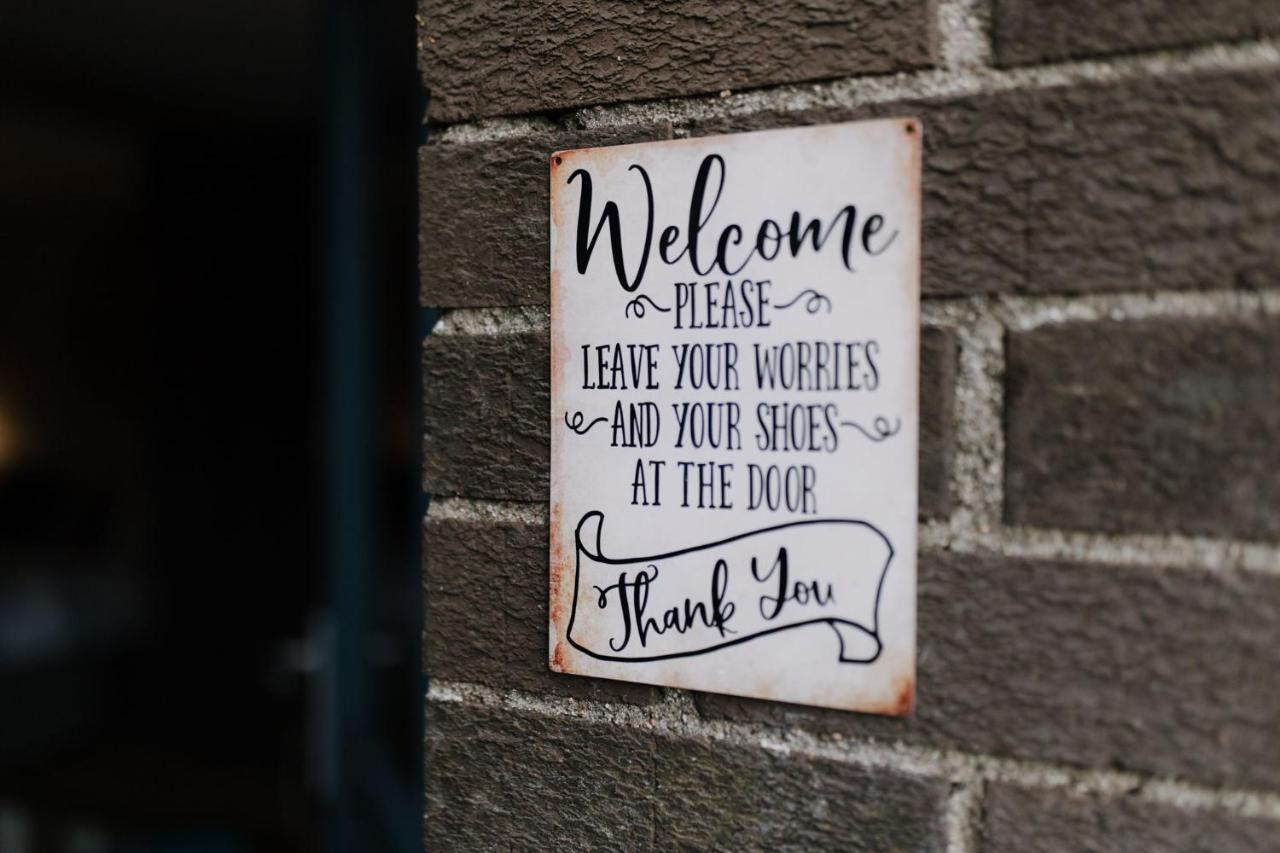 Welcome
PLEASE
LEAVE YOUR WORRIES
AND YOUR SHOES
AT THE DOOR
Thank You